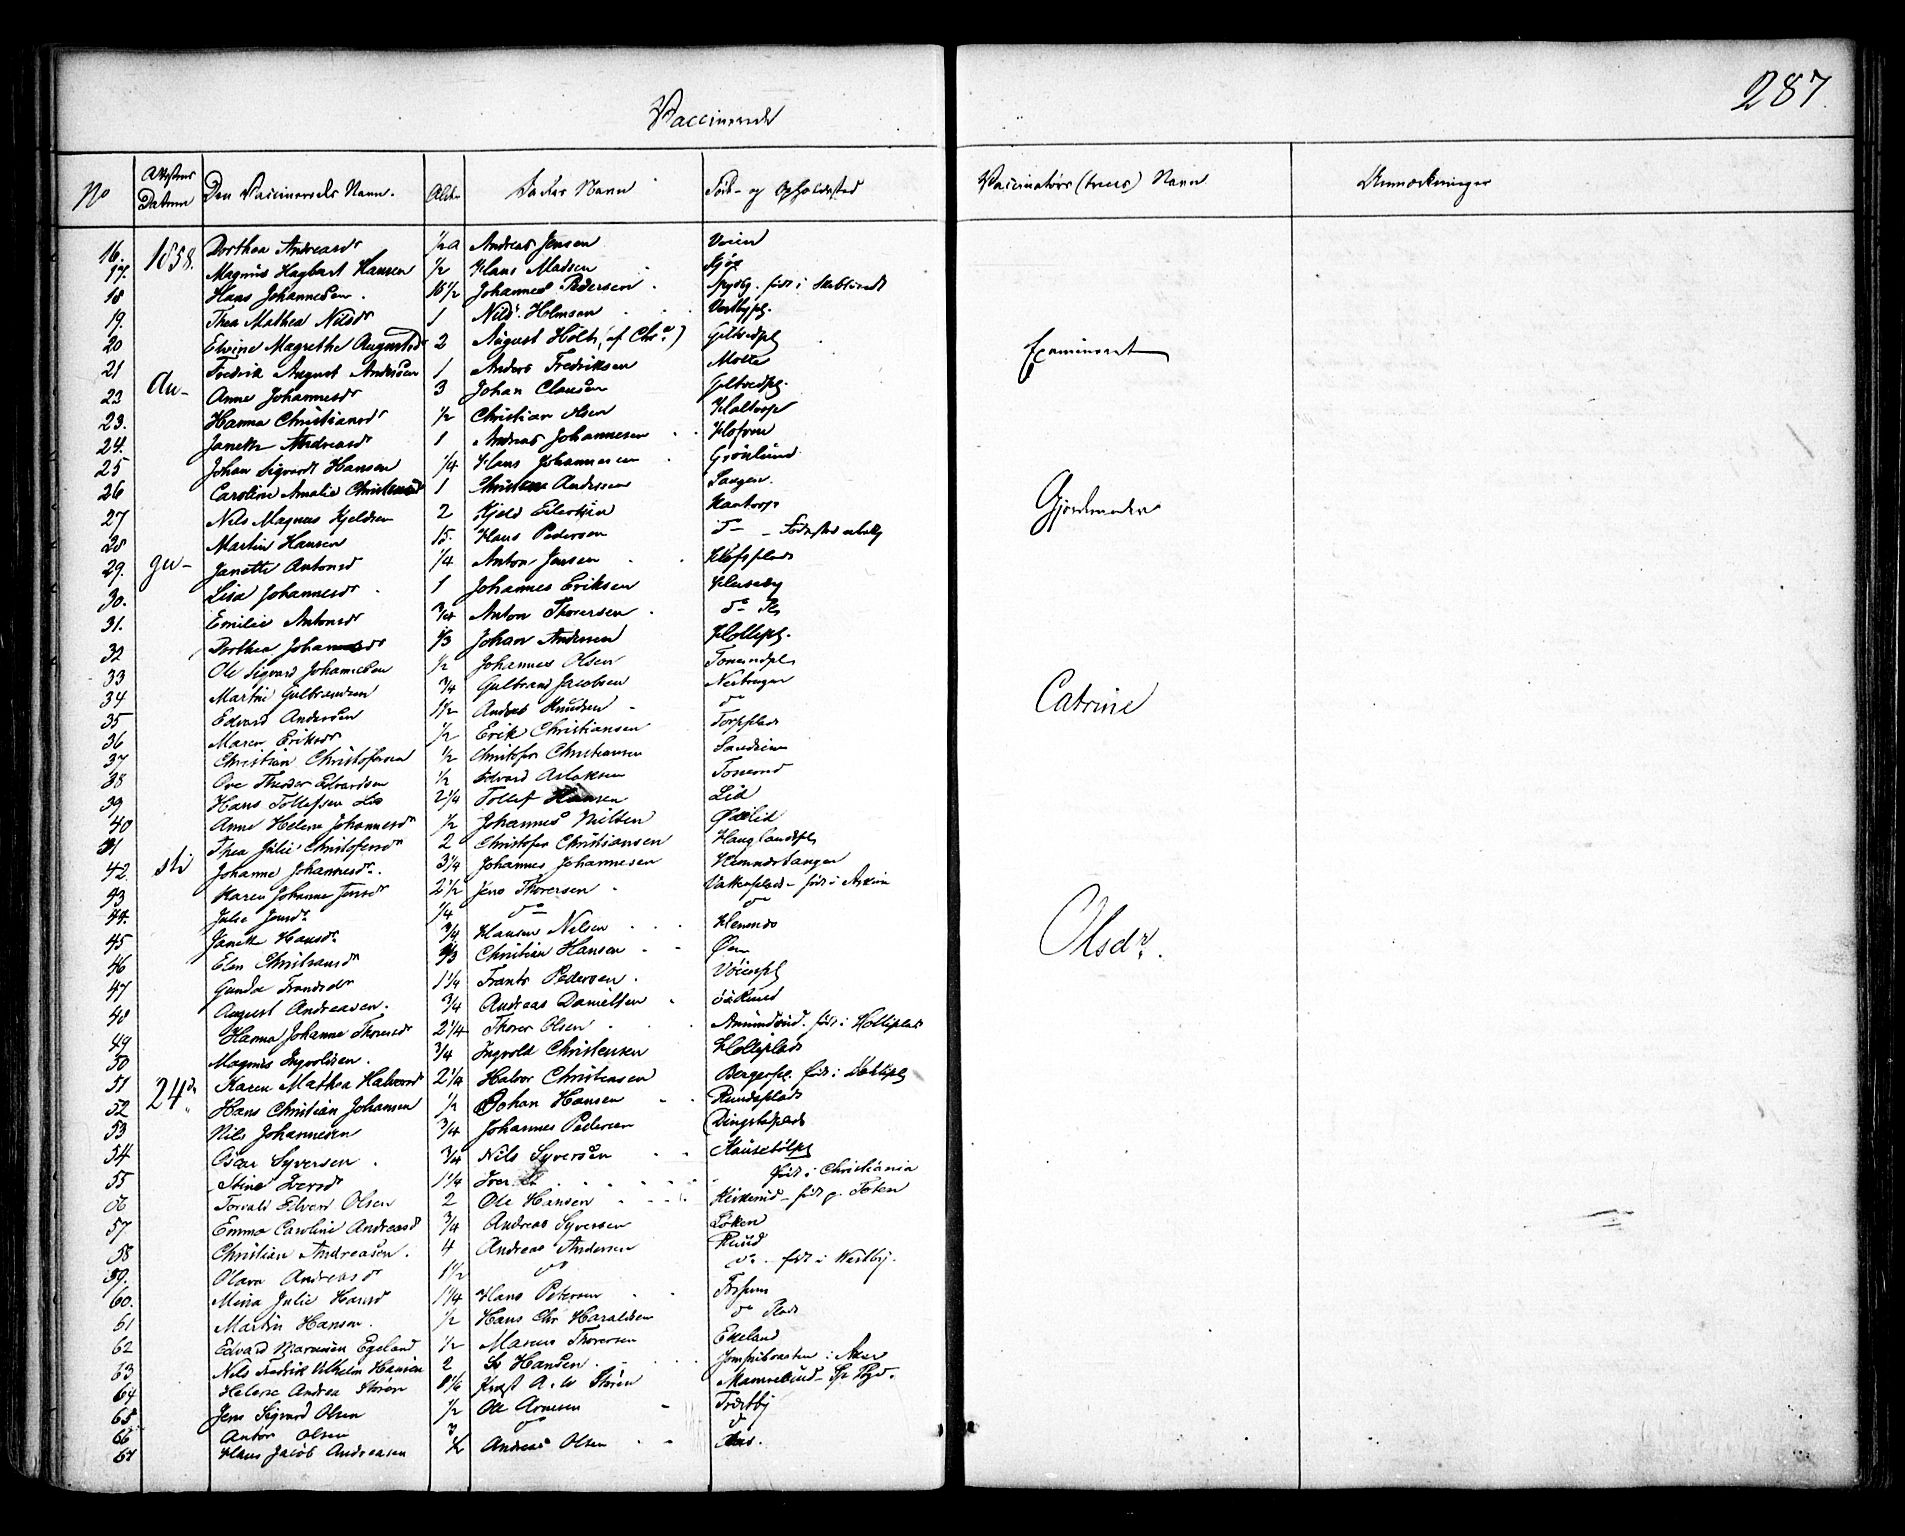 287.
Vaccinerede
No Attestens Datum Den Vaccineredes Navn. Alder Faders Navn Føde- og Opholdssted Vaccinatørs (trices) Navn Anmærkninger
16. 1858. Dorthea Andreasdr 1/2 a Andreas Jensen Veien
17. Magnus Hagbart Hansen 1/2 Hans Madsen
18 Hans Johannesen. 16 1/2 Johannes Pedersen. Spydbg. født i Skibtvedt
19. Thea Mathea Nilsdr 1 Nils Holmsen Vestbypl.
20 Elvine Magrethe Augustsdr 2 August Holtz (af Chra.) Geltvedpl
21 Fredrik August Andersen 1 Anders Fredriksen Molte
23 Au- Anne Johannesdr 3 Johan Clausen Geltvedpl.
23. Hanna Christiansdr 1/2 Christian Olsen Haltorp
24. Janette Andreasdr 1 Andreas Johannesen
25 Johan Sigvardt Hansen 1/4 Hans Johannesen Grønlund
26 Caroline Amalie Christensdr 1 Christen Andersen Tangen.
27 Nils Magnus Kjeldsen 2 Kjeld Eilertsen Kantorp
28 Martin Hansen 15. Hans Pedersen do - Fødested
29. gu- Janette Antonsd 1/4 Anton Jensen
30. Lisa Johannesdr 1 Johannes Eriksen Huseby
31. Emilie Antonsdr 3/4 Anton Thoresen. do Pl
32 Dorthea Johansdr 1/3 Johan Andersen Hollipl.
33 Ole Sigvard Johannesen 1/2 Johannes Olsen
34 Martin Gulbrandsen 3/4 Gulbrand Jacobsen
35 Edvard Andersen 1 1/2 Anders Knudsen do
36 Maren Eriksdr 1/2 Erik Christiansen Torpplads
37 Christian Christofersen 1/2 Christofer Christiansen
38 Ove Theodor Edvardsen 1/2 Edvard Aslaksen
39 Hans Tollefsen Lid 2 1/4 Tollef Hansen Lid
40 Anne Helene Johannesdr 1/2 Johannes Nielsen
41 Thea Julie Christofersdr 2 Christofer Christiansen Hauglandspl
42. sti Johanne Johannesdr. 3 1/4 Johannes Johannesen Hemnestangen
43 Karen Johanne Jensdr 2 1/2 Jens Thoresen født i Askim
44. Julie Jensdr 1/4 do do
45 Janette Hansdr 3/4 Hansen Nilsen Hemnes
46 Elen Christiansdr Christian Hansen
47 Gunda Frantsdr 1 1/4 Frants Pedersen.
48 August Andreasen. 3/4 Andreas Danielsen
49 Hanna Johanne Thoresdr 2 1/4 Thorer Olsen Amundrud. født i Holliplads
50 Magnus Ingvoldsen. 3/4 Ingvold Christensen Holliplads
51 24de Karen Mathea Halvorsdr 2 1/4 Halvor Christensen Bergerpl. født i
52 Hans Christian Johansen 1/2 Johan Hansen Rundeplads
53 Nils Johannesen 3/4 Johannes Pedersen Dingstaplads
54 Oscar Syversen 3/4 Nils Syversen
55 Stine Iversd 1 1/4 Iver født i Christiania
56 Torvald Edvard Olsen 2 Ole Hansen Kirkerud - født p. Toten
57 Emma Caroline Andreasd 3/4 Andreas Syversen Løken
58 Christian Andreasen. 4 Andreas Andersen Ruud
59. Olava Andreasdr 1 1/2 do do født i Westby.
60. Mina Julie Hansd 1 1/4 Hans Petersen
61 Martin Hansen. 1/2 Hans Chr Haraldsen do Plads
62 Edvard Marensen Egeland 1/2 Marens Thoresen Egeland
63 Nils Fredrik Vilhelm Hansen 2 Hansen. i Aker
64 Helene Andrea Støren A. W Støren
65 Jens Sigvard Olsen 1/2 Ole Arnesen
66 Anton Olsen 3 do do
67 Hans Jacob Andreasen 1/2 Andreas Olsen Aas.
Examineret
Gjordemoder
Catrine
Olsdr.